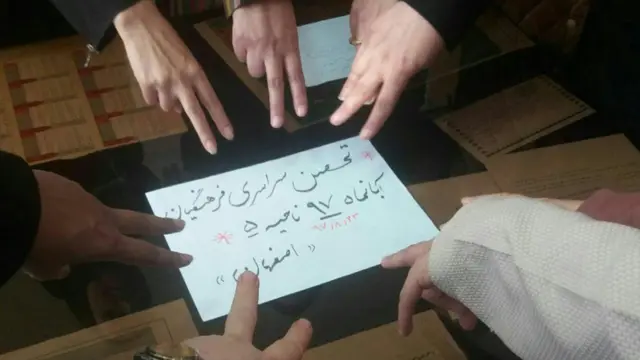 تحصن سراسری فرهنگیان
آبانماه ۹۷ ناحیه ۵
۹۷/۸/۲۳
« اصفهان »